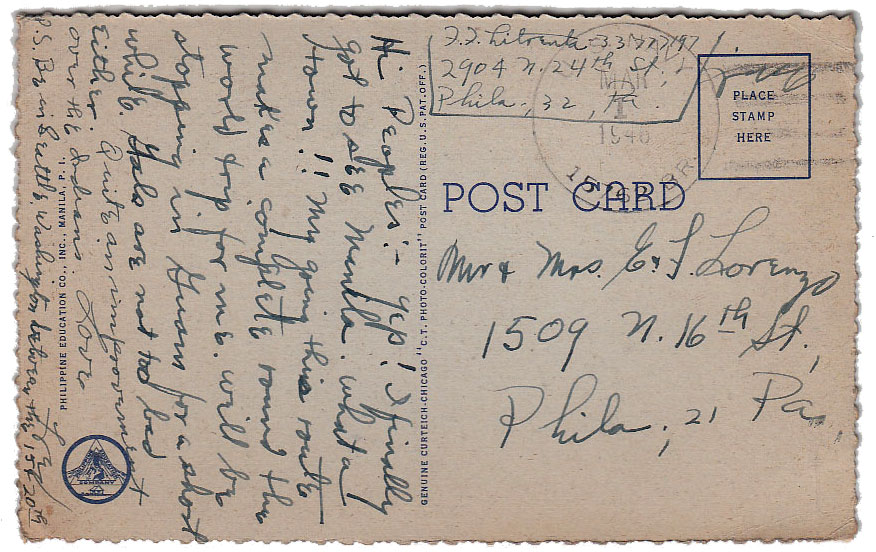 Hi Peoples:- Yep! I finally
got to see Manila. What a
town!! My going this route
makes a complete round the
world trip for me. Will be
stopping in Guam for a short
while. Gals are not too bad
either. Quite an improvement
over the Indians. Love
P.S. Be in Seattle, Washington between the 15 & 20th
PHILIPPINE EDUCATION CO., INC., MANILA, P. I.
GENUINE CURTEICH-CHICAGO "C.T. PHOTO-COLORIT" POST CARD (REG. U.S. PAT. OFF.)
33777197
2904 N. 24th St.
Phila., 32, Pa.
MAR
1
1946
PLACE
STAMP
HERE
POST CARD
Mr & Mrs. E. J. Lorenzo
1509 N. 16th St.,
Phila., 21 Pa.
COMPANY